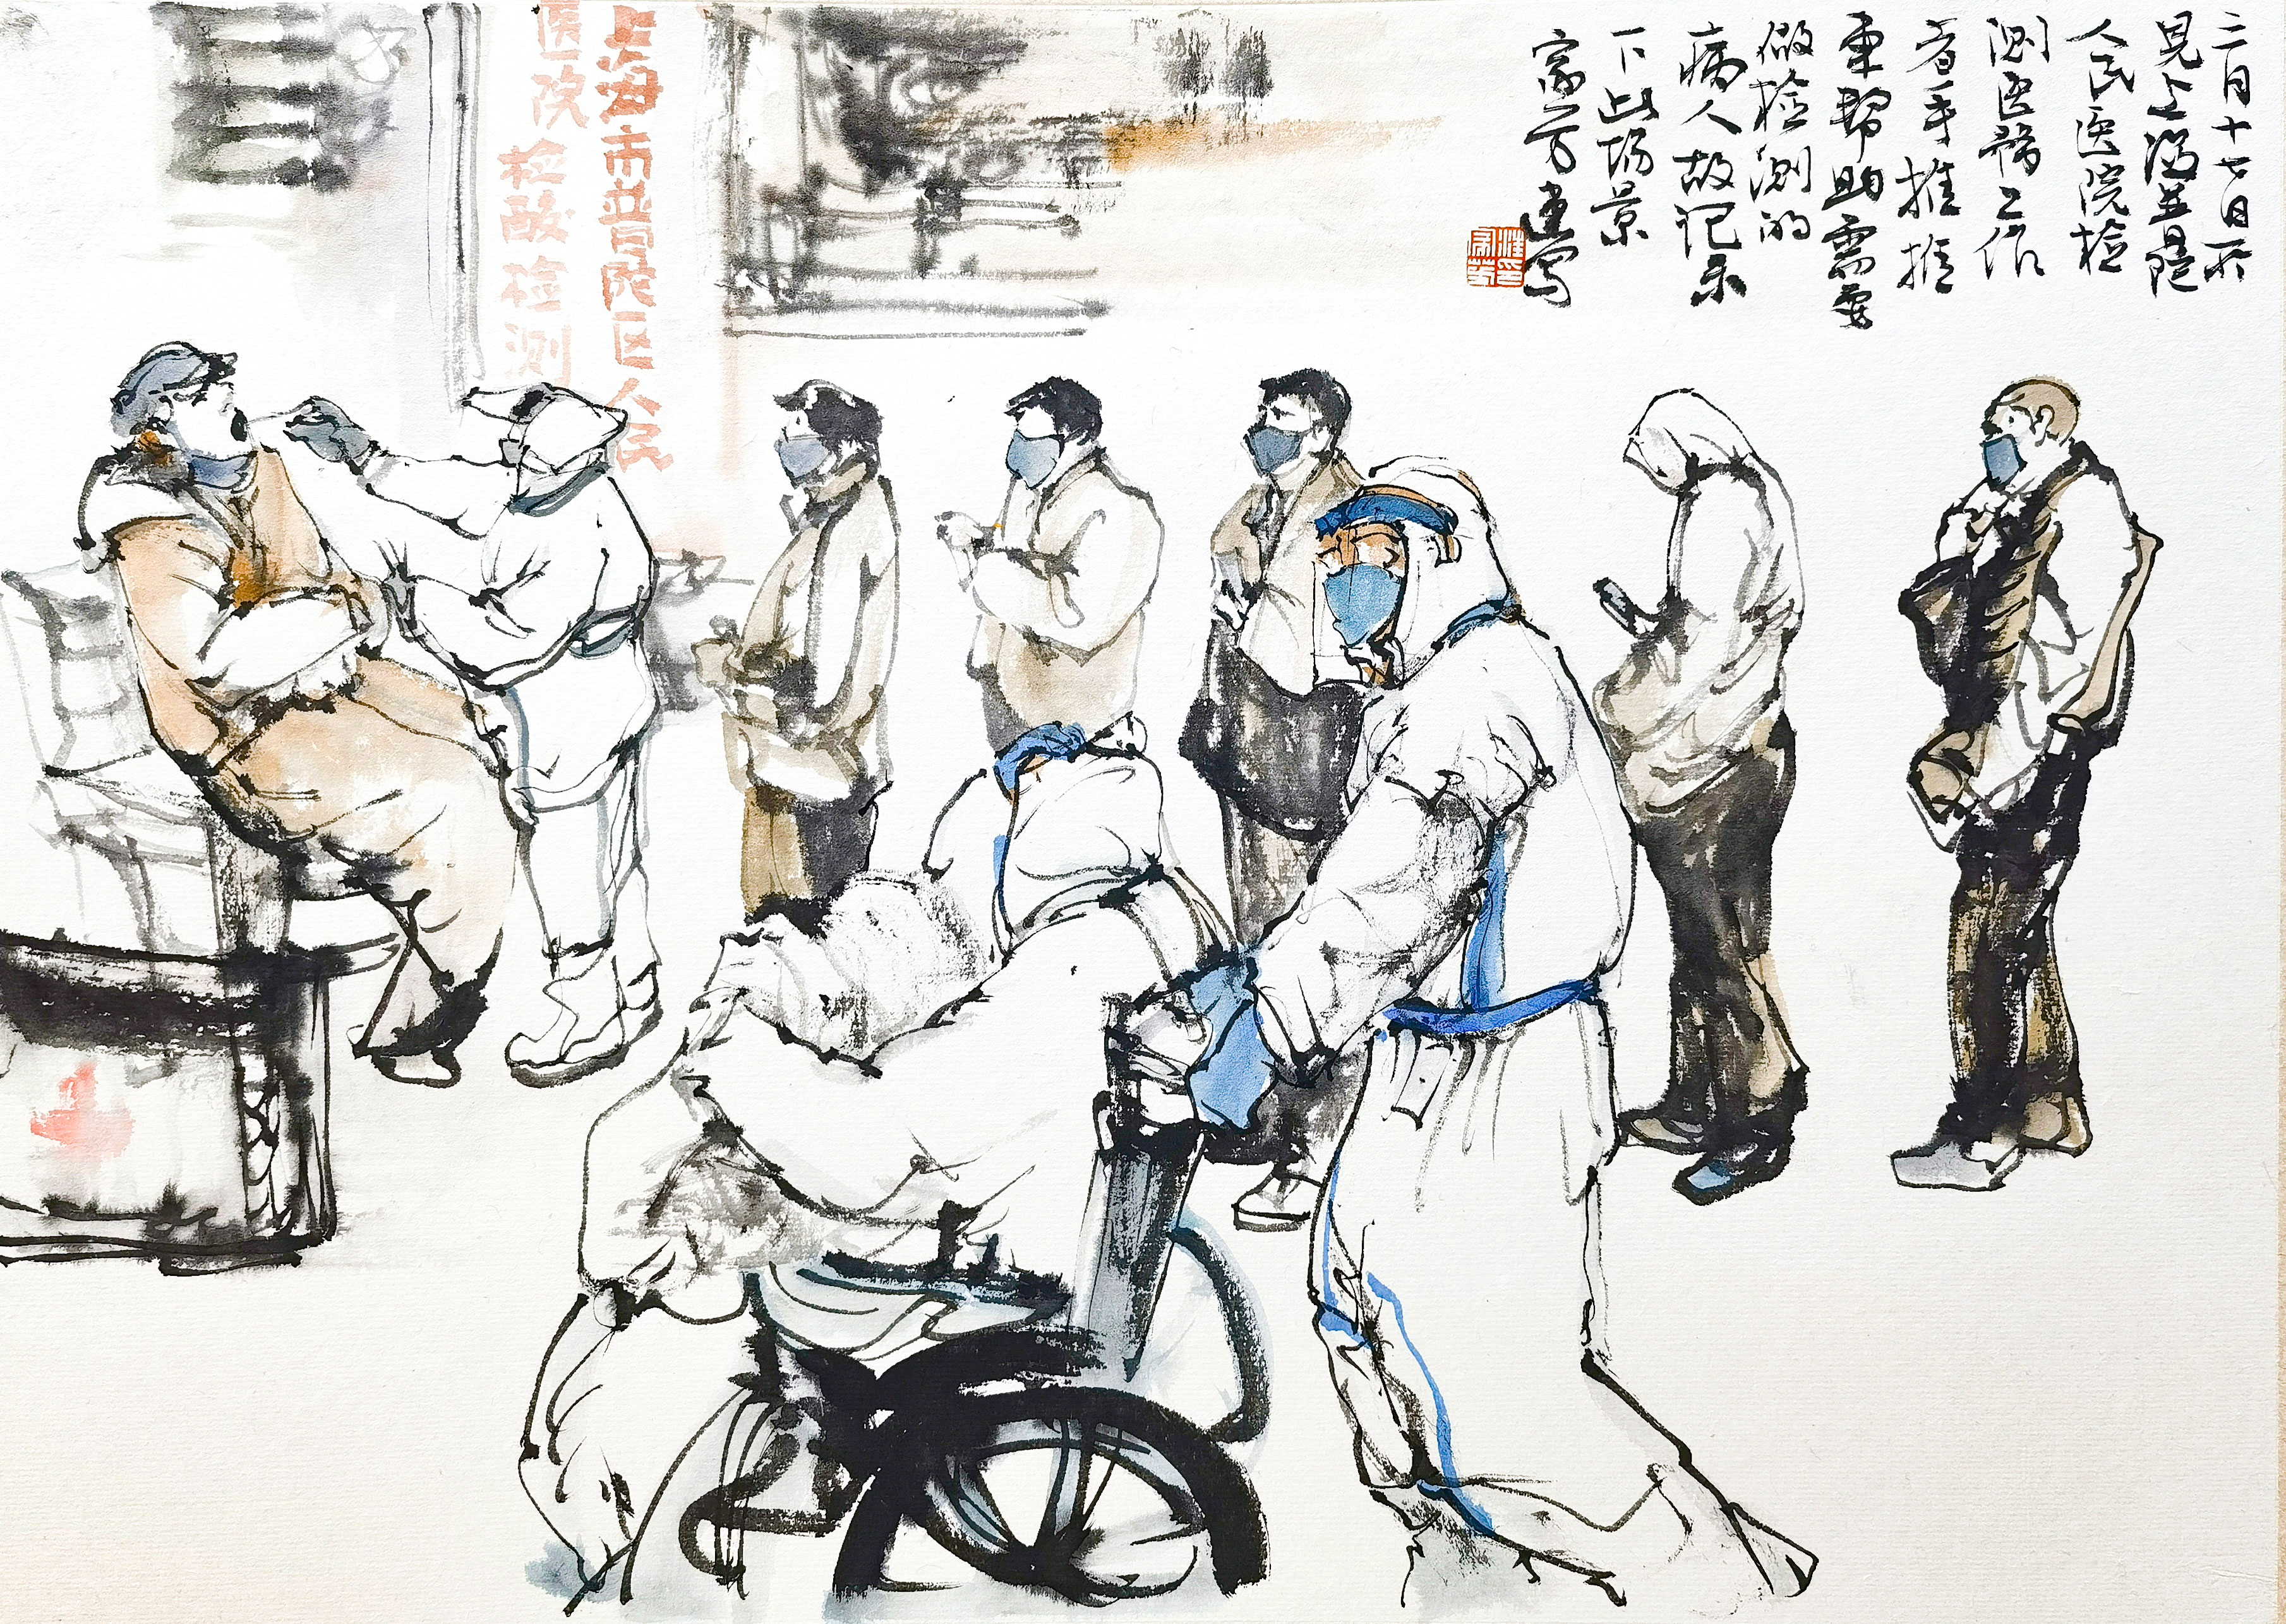 二月十七日所
见上海普陀
人民医院检
测医务工作
者手推推
车帮助需要
做检测的
病人故记录
下此场景
家芳写
上海市普陀区人民
医院 核酸检测